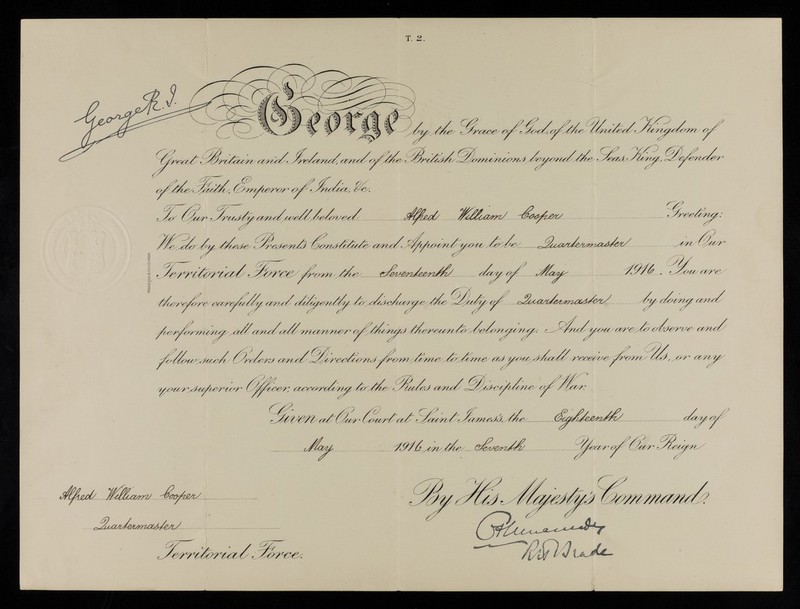 T. 2.
George R. I.
George by the Grace of God, of the United Kingdom of
Great Britain and Ireland, and of the British Dominions beyond the Seas King, Defender
of the Faith, Emperor of India, &c.
To Our Trusty and well beloved Alfred William Cooper Greeting:
We do by these Presents Constitute and Appoint you to be Quartermaster in Our
Territorial Force from the Seventeenth day of May 1916. You are
therefore carefully and diligently to discharge the Duty of Quartermaster by doing and
performing all and all manner of things thereunto belonging. And you are to observe and
follow such Orders and Directions from time to time as you shall receive from Us, or any
your superior Officer, according to the Rules and Discipline of War.
Given at Our Court at Saint James's, the Eighteenth day of
May 1916 in the Seventh Year of Our Reign
By His Majesty's Command.
Alfred William Cooper
Quartermaster
Territorial Force.